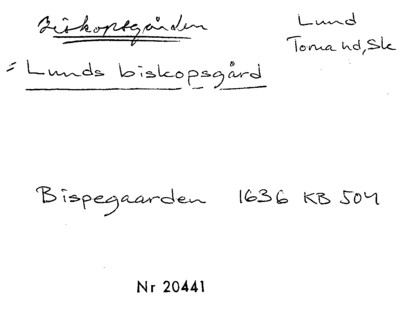 Biskopsgården
Lund
Torna hd, Sk
= Lunds biskopsgård
Bispegaarden 1636 KB 504
Nr 20441